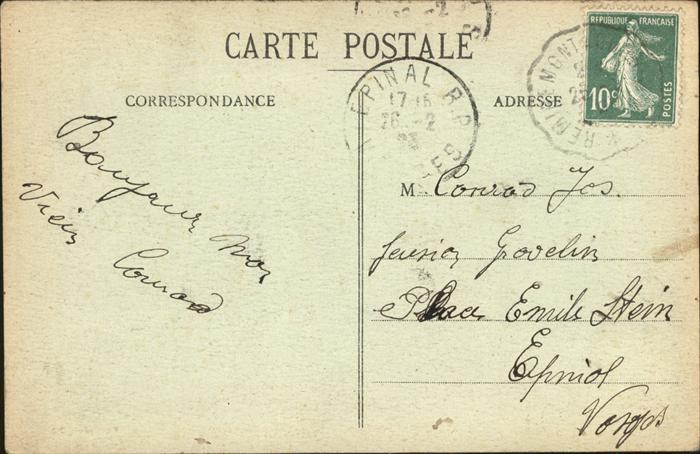 CARTE POSTALE
CORRESPONDANCE
ADRESSE
RÉPUBLIQUE FRANÇAISE
10c
POSTES
EPINAL R.P.
17 15
26 -2
Bonjour mon
Vieux Conrad
M. Conrad Jos.
Grovelin
Place Emile Stein
Epinal
Vosges